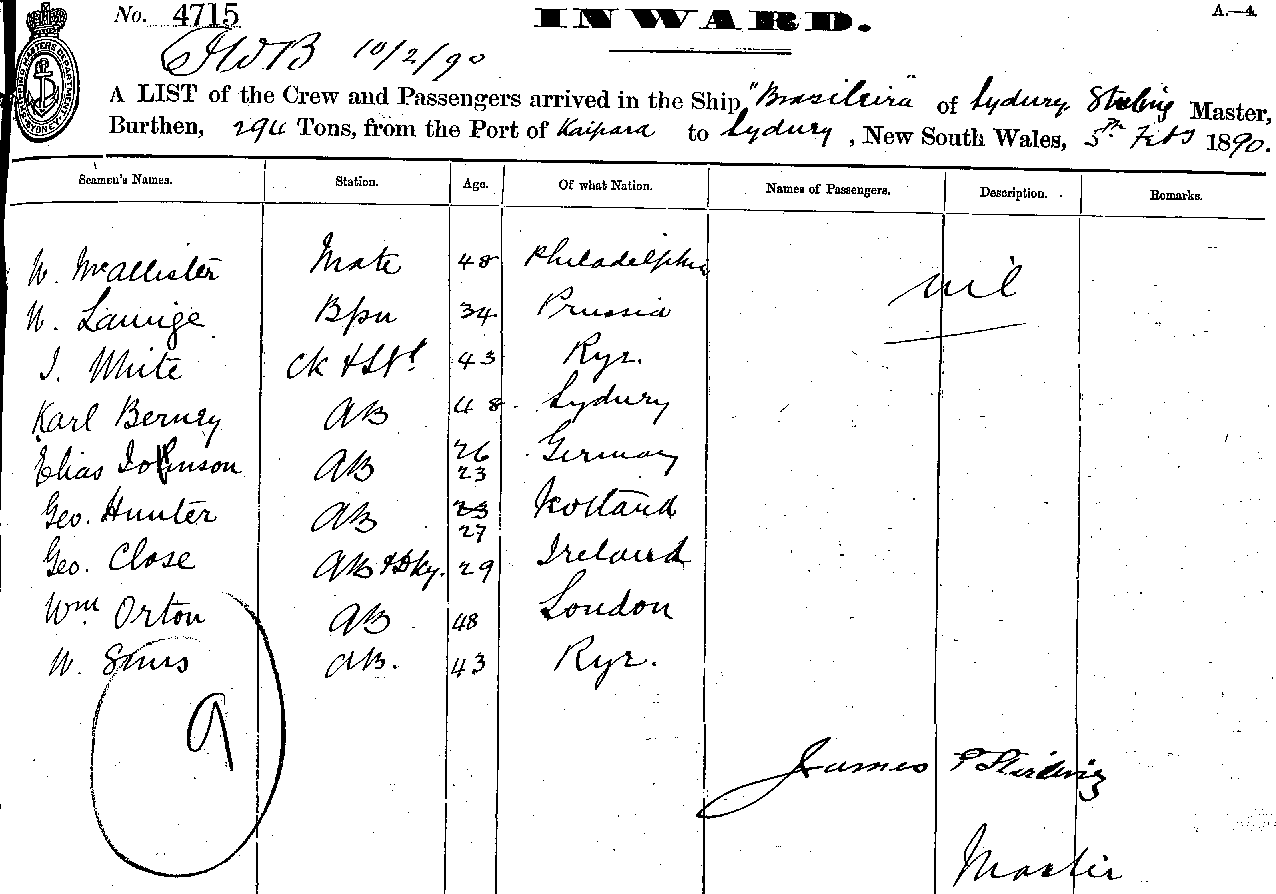 No. 4715
INWARD.
A.—4.
10/2/90
A LIST of the Crew and Passengers arrived in the Ship "Brasileira" of Sydney, Sterling Master,
Burthen, 294 Tons, from the Port of Kaipara to Sydney, New South Wales, 5th Feb 1890.
Seamen's Names. Station. Age. Of what Nation. Names of Passengers. Description. Remarks.
W. McAllister Mate 48 Philadelphia nil
W. Bsn 34 Prussia
J. White Ck & Std 43 Ryr.
Karl Berney AB 48 Sydney
Elias Johnson AB 26 23 Germany
Geo. Hunter AB 23 27 Scotland
Geo. Close AB & Dky. 29 Ireland
Wm Orton AB 48 London
W. Sims AB. 43 Ryr.
9
James Sterling
Master